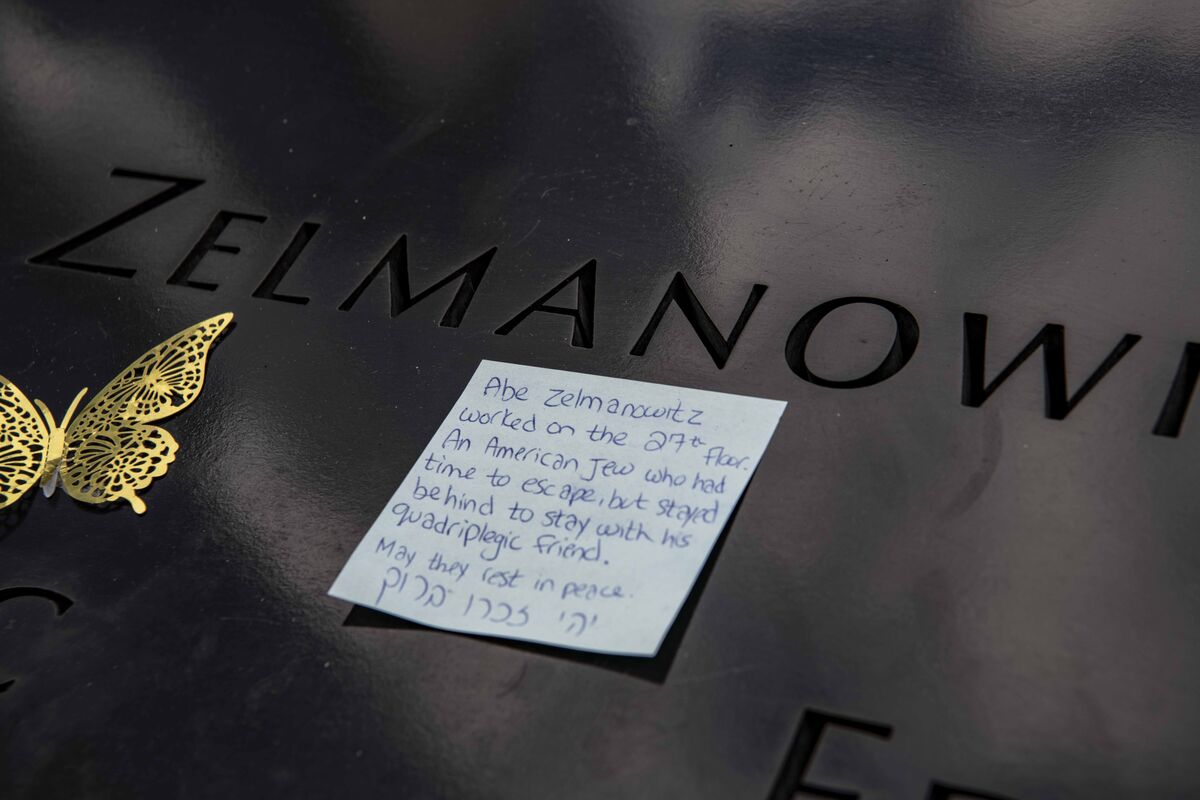 ZELMANOWI
Abe Zelmanowitz
worked on the 27th floor.
An American Jew who had
time to escape, but stayed
behind to stay with his
quadriplegic friend.
May they rest in peace.
יהי זכרו ברוך
C
E